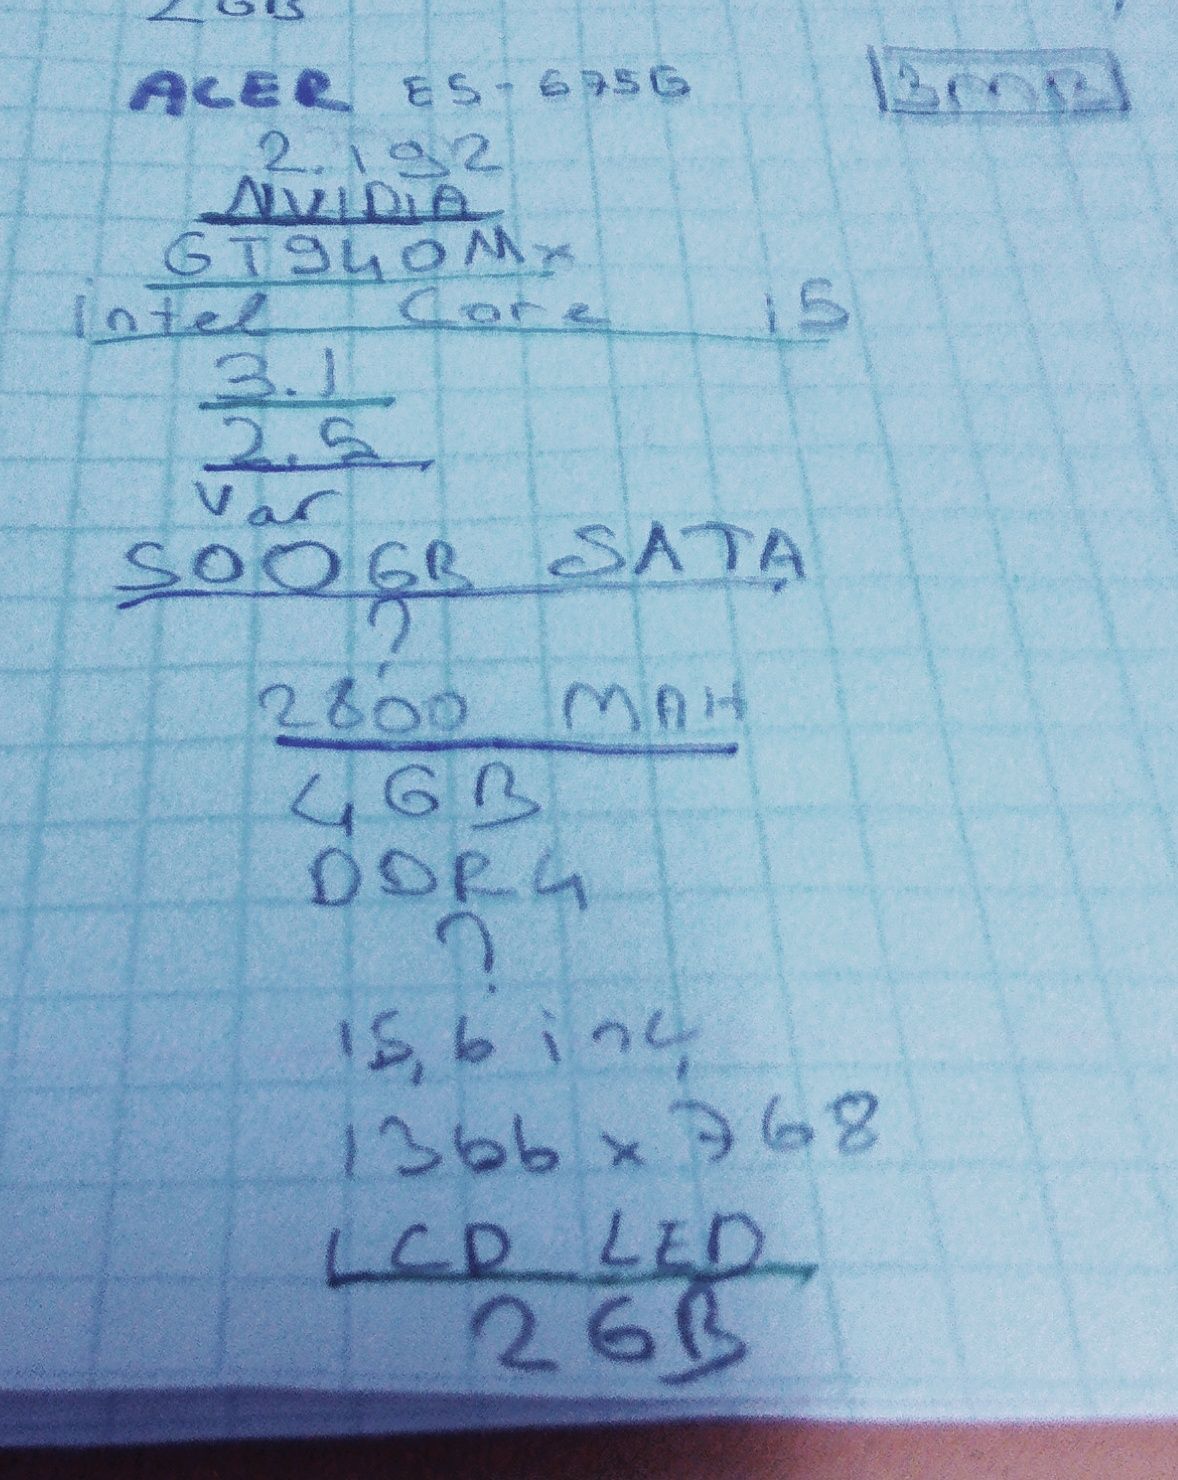 2GB
ACER E5-675G
2.192
NVIDIA
GT940Mx
intel Core i5
3.1
2.5
Var
500GB SATA
?
2800 MAH
4GB
DDR4
?
15,6 inç
1366 x 768
LCD LED
2GB